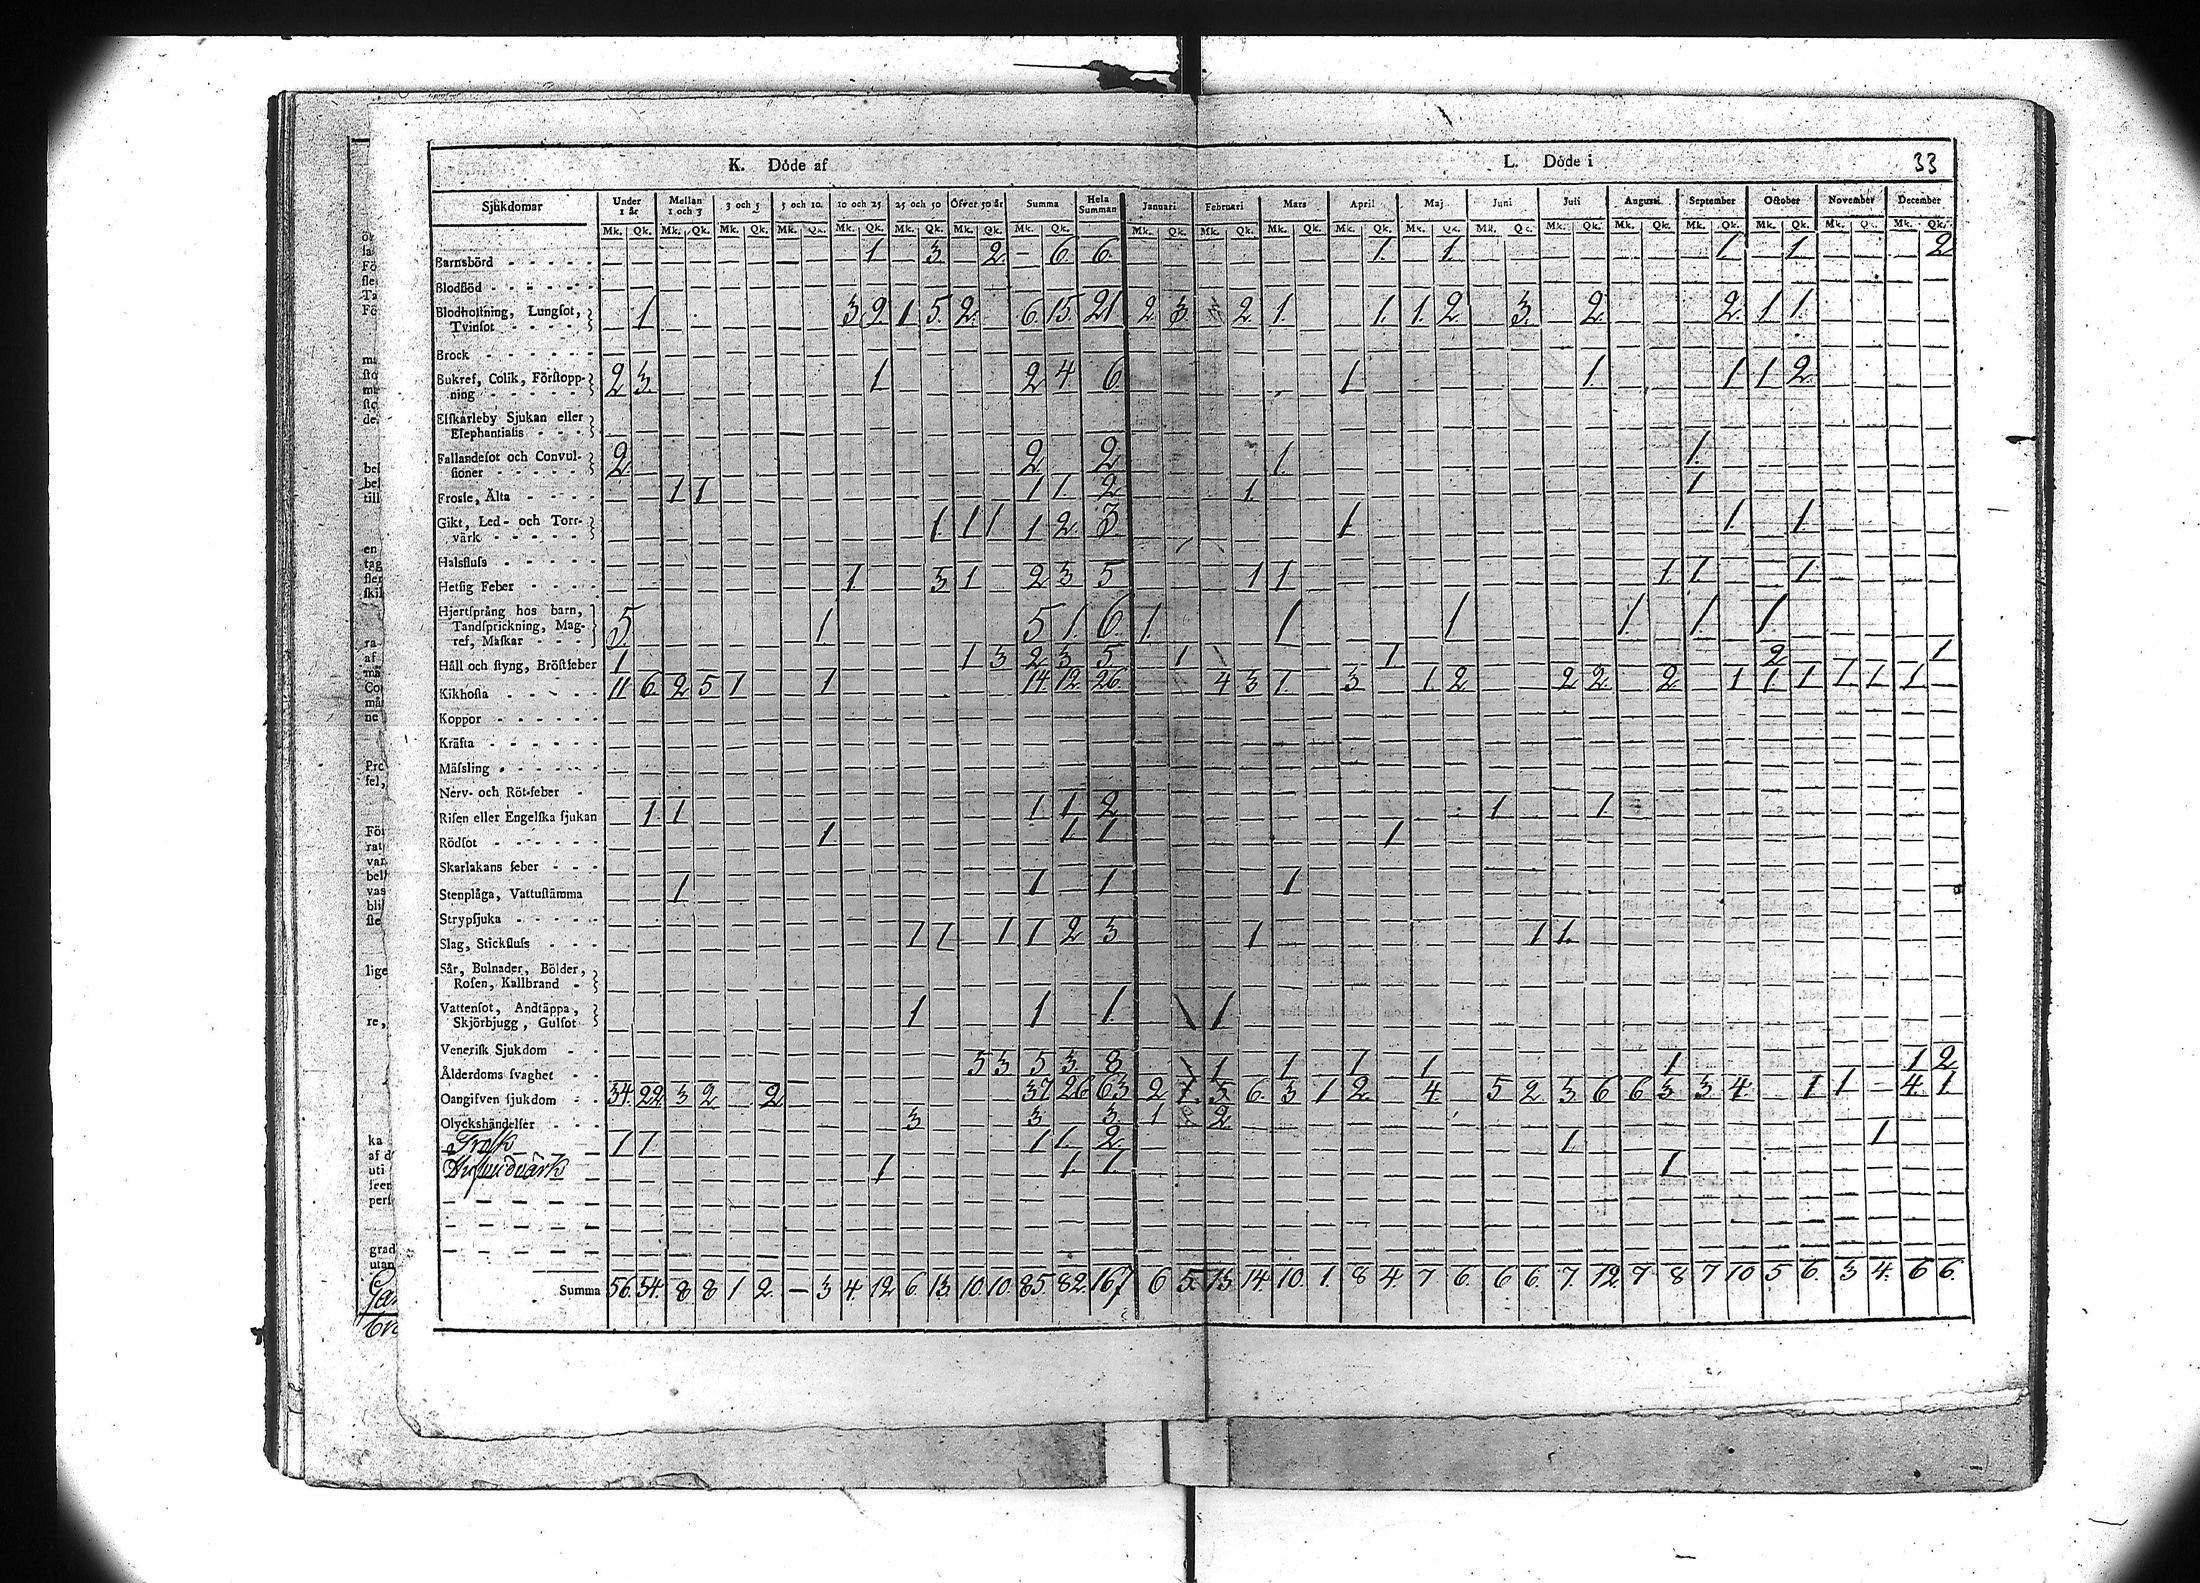 K. Döde af
L. Döde i 33
Sjukdomar Under 1 år Mellan 1 och 3 3 och 5 5 och 10. 10 och 25 25 och 50 Öfver 50 år Summa Hela Summan Januari Februari Mars April Maj Juni Juli Augusti September October November December
Mk. Qk. Mk. Qk. Mk. Qk. Mk. Qk. Mk. Qk. Mk. Qk. Mk. Qk. Mk. Qk. Mk. Qk. Mk. Qk. Mk. Qk. Mk. Qk. Mk. Qk. Mk. Qk. Mk. Qk. Mk. Qk. Mk. Qk. Mk. Qk. Mk. Qk. Mk. Qk.
Barnsbörd 1 3 2 — 6 6 1 1 1 1 2
Blodflöd
Blodhostning, Lungsot,
Tvinsot 1 3 2 1 5 2 6 15 21 2 3 2 1 1 1 2 3 2 2 1 1
Brock
Bukref, Colik, Förstopp-
ning 2 3 1 2 4 6 1 1 1 1 2
Elfkarleby Sjukan eller
Elephantiasis
Fallandesot och Convul-
sioner 2 2 2 1 1
Frossa, Älta 1 1 1 1 2 1 1
Gikt, Led- och Torr-
värk 1 1 1 1 2 3 1 1 1
Halsfluss
Hetsig Feber 1 3 1 2 3 5 1 1 1 1 1
Hjertsprång hos barn,
Tandsprickning, Mag-
ref, Maskar 5 1 5 1 6 1 1 1 1 1 1
Håll och styng, Bröstfeber 1 1 3 2 3 5 1 1 2 1
Kikhosta 11 6 2 5 1 1 14 12 26 4 3 1 3 1 2 2 2 2 1 1 1 1 1 1
Koppor
Kräfta
Mässling
Nerv- och Röt-feber
Risen eller Engelska sjukan 1 1 1 1 2 1 1
Rödsot 1 1 1 1
Skarlakans feber
Stenplåga, Vattustämma 1 1 1 1
Strypsjuka
Slag, Stickfluss 1 1 1 1 2 3 1 1 1
Sår, Bulnader, Bölder,
Rosen, Kallbrand
Vattensot, Andtäppa,
Skjörbjugg, Gulsot 1 1 1 1
Venerisk Sjukdom
Ålderdoms svaghet 5 3 5 3 8 1 1 1 1 1 1 2
Oangifven sjukdom 34 22 3 2 2 37 26 63 2 1 5 6 3 1 2 4 5 2 3 6 6 3 3 4 1 1 4 1
Olyckshändelser 3 3 3 1 2
Trosk 1 1 1 1 2 1 1
1 1 1 1
Summa 56 34 8 8 1 2 — 3 4 12 6 13 10 10 85 82 167 6 5 13 14 10 1 8 4 7 6 6 6 7 12 7 8 7 10 5 6 3 4 6 6